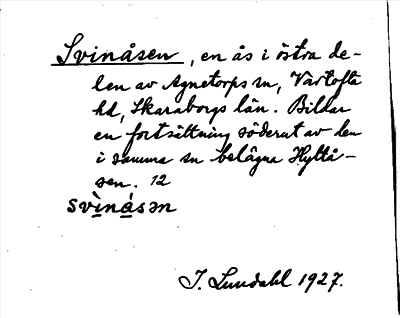 Svinåsen, en ås i östra de-
len av Agnetorps sn, Vartofta
hd, Skaraborgs län. Bildar
en fortsättning söderut av den
i samma sn belägna Hyltå-
sen. 12
svìnásən
I. Lundahl 1927.